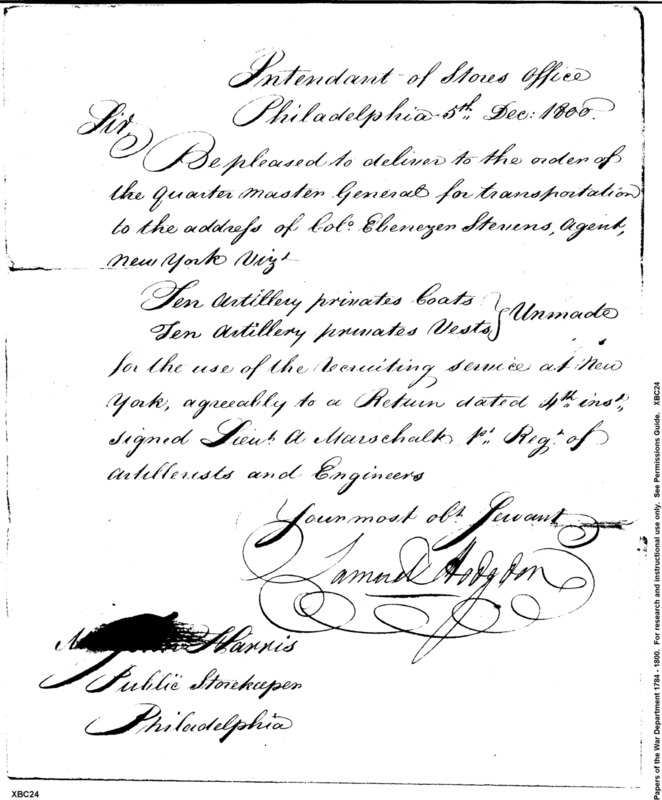 Intendant of Stores Office
Philadelphia 5th Dec: 1800.
Sir,
Be pleased to deliver to the order of
the Quarter Master General for transportation
to the address of Colo. Ebenezer Stevens, Agent,
New York Vizt
Ten Artillery privates Coats
Ten Artillery privates Vests } Unmade
for the use of the recruiting service at New
York, agreeably to a Return dated 4th inst.,
signed Lieut. A Marschalk 1st. Regt. of
Artillerists and Engineers
Your most obt. Servant
Samuel Hodgdon
Harris
Public Storekeeper
Philadelphia
XBC24
Papers of the War Department 1784 - 1800. For research and instructional use only. See Permissions Guide. XBC24